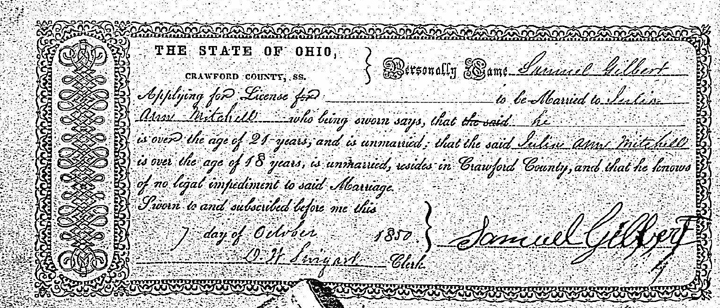 THE STATE OF OHIO,
CRAWFORD COUNTY, SS.
Personally Came Samuel Gilbert
Applying for License for to be Married to Julia
Ann Mitchell who being sworn says, that the said he
is over the age of 21 years, and is unmarried; that the said Julia Ann Mitchell
is over the age of 18 years, is unmarried, resides in Crawford County, and that he knows
of no legal impediment to said Marriage.
Sworn to and subscribed before me this
7 day of October 1850.
Samuel Gilbert
Clerk